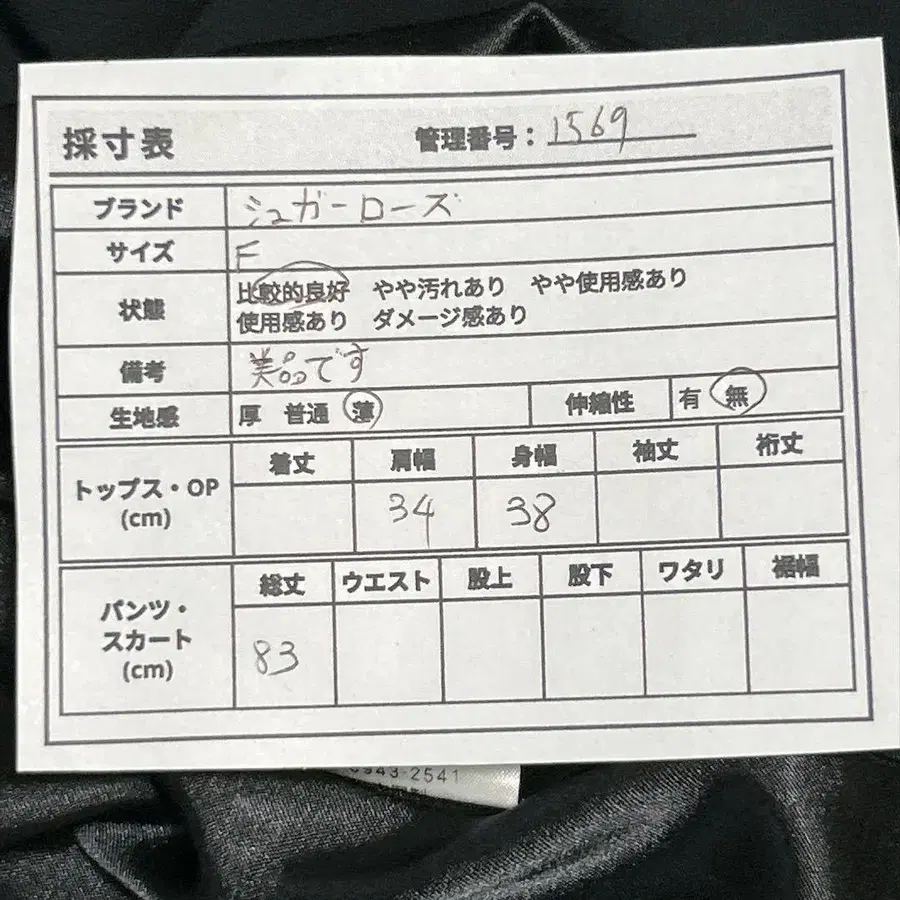 採寸表 管理番号: 1569
ブランド シュガーローズ
サイズ F
状態 比較的良好 やや汚れあり やや使用感あり
使用感あり ダメージ感あり
備考 美品です
生地感 厚 普通 薄 伸縮性 有 無
トップス・OP
(cm)
着丈 肩幅 身幅 袖丈 裄丈
34 38
パンツ・
スカート
(cm)
総丈 ウエスト 股上 股下 ワタリ 裾幅
83
943-2541